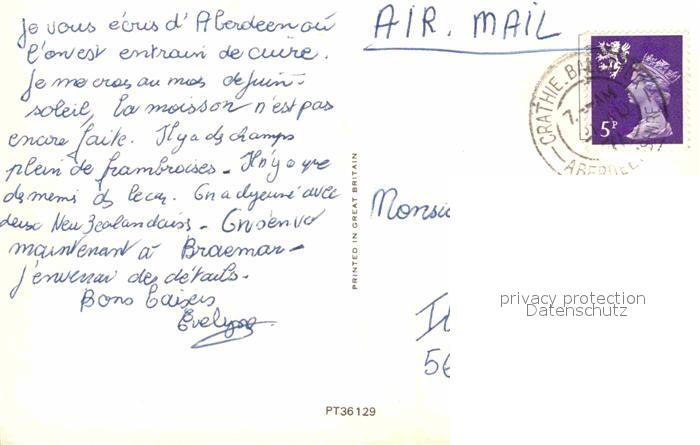 Je vous écris d'Aberdeen où
l'on est entrain de cuire.
Je me crois au mois de juin -
soleil, la moisson n'est pas
encore faite. Il y a des champs
plein de frambroises - Il n'y a que
des de On a dejeuné avec
deux New Zealandais - On s'en va
maintenant à Braemar -
j'enverrai des détails.
Bons baisers
Evelyne
PRINTED IN GREAT BRITAIN
PT36129
AIR. MAIL
CRATHIE. BALLATER
7. AM
ABERDEEN
5P
Monsie
privacy protection
Datenschutz
56